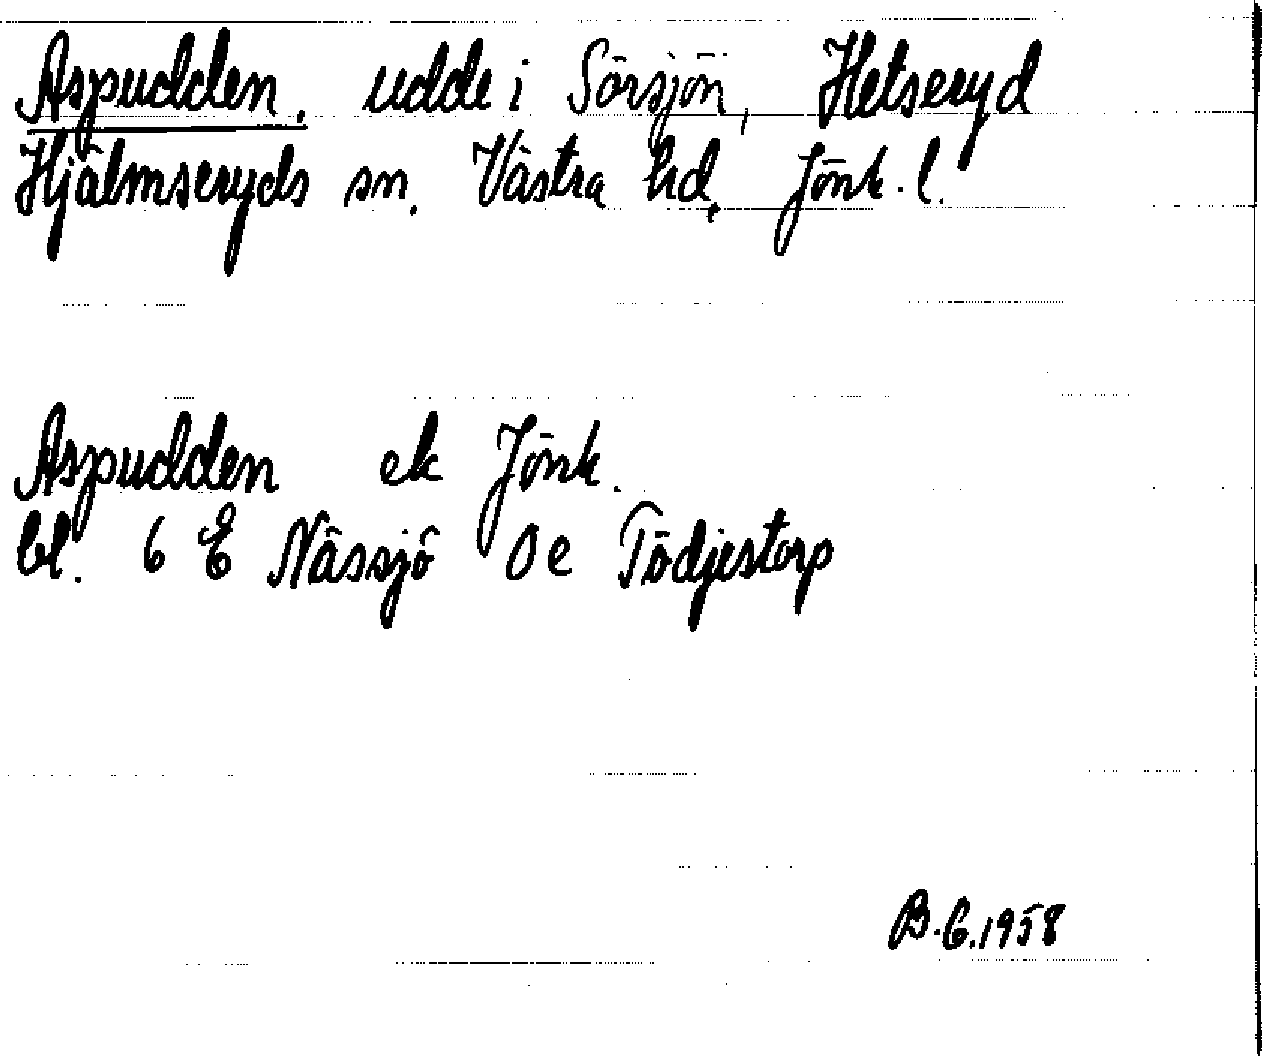 Aspudden. udde i Sörsjön, Hetseryd
Hjälmseryds sn. Västra hd. Jönk. l.
Aspudden ek Jönk.
bl. 6 E Nässjö 0 e Tödjestorp
B.G.1958